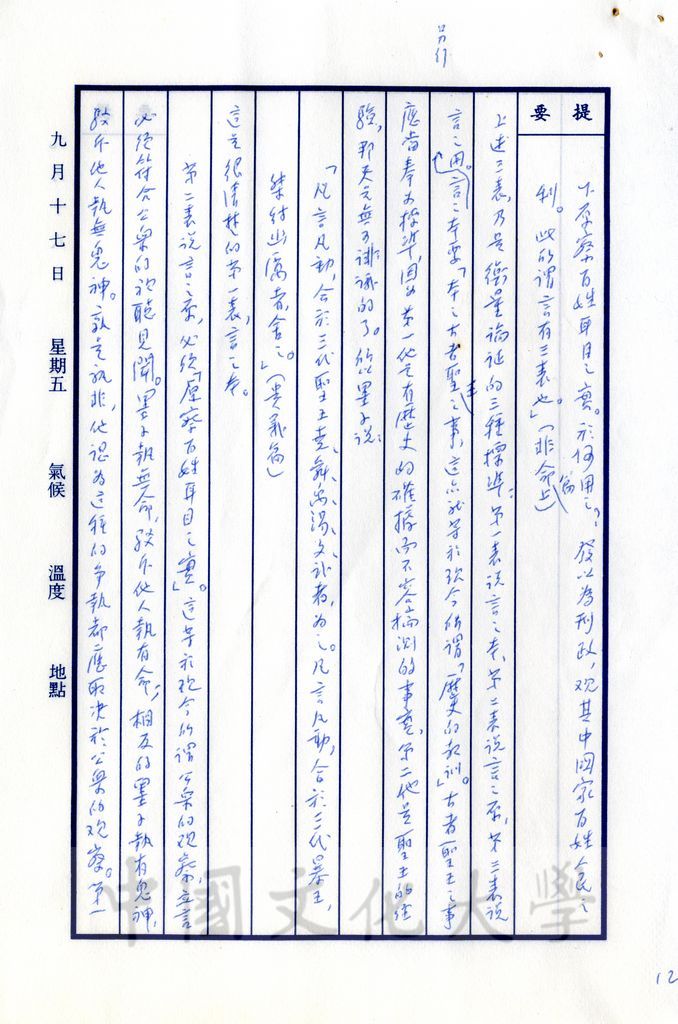 另行
提要
下原察百姓耳目之實。於何用之？發以為刑政，观其中國家百姓人民之
利。此所謂言有三表也」（非命上篇）
上述三表，乃是衡量論证的三種標準：第一表說言之本，第二表說言之原，第三表說
言之用。言之本要「本之古者聖王之事」，這点就等於现今所謂「歷史的教训」。古者聖王之事
應當奉为標準，因为第一他是有歷史的確據而不容揣测的事實，第二他是聖王的经
驗，那是无可诽谤的了。所以墨子說：
「凡言凡動，合於三代聖王堯、舜、禹、湯、文、武者，為之。凡言凡動，合於三代暴王，
桀紂幽厲者，舍之。」（貴義篇）
這是很清楚的第一表，言之本。
第二表說言之原，必須「原察百姓耳目之實」。這等於现今所謂公衆的观察，立言
必須符合公衆的视聽見聞。墨子執無命，駁斥他人執有命；相反的墨子執有鬼神，
駁斥他人執無鬼神。孰是孰非，他認為這種的争執都應取决於公衆的观察。第一
九月十七日 星期五 氣候 溫度 地點
中國文化大學
12